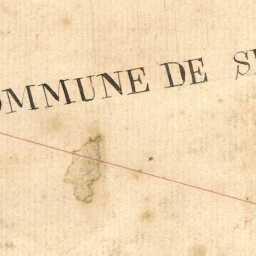 OMMUNE DE S